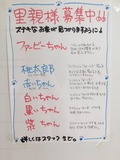 里親様募集中
ステキなお家が見つかりますように
ファービーちゃん
桃太郎
赤いちゃん
白いちゃん
黒いちゃん
紫ちゃん
詳しくはスタッフまで